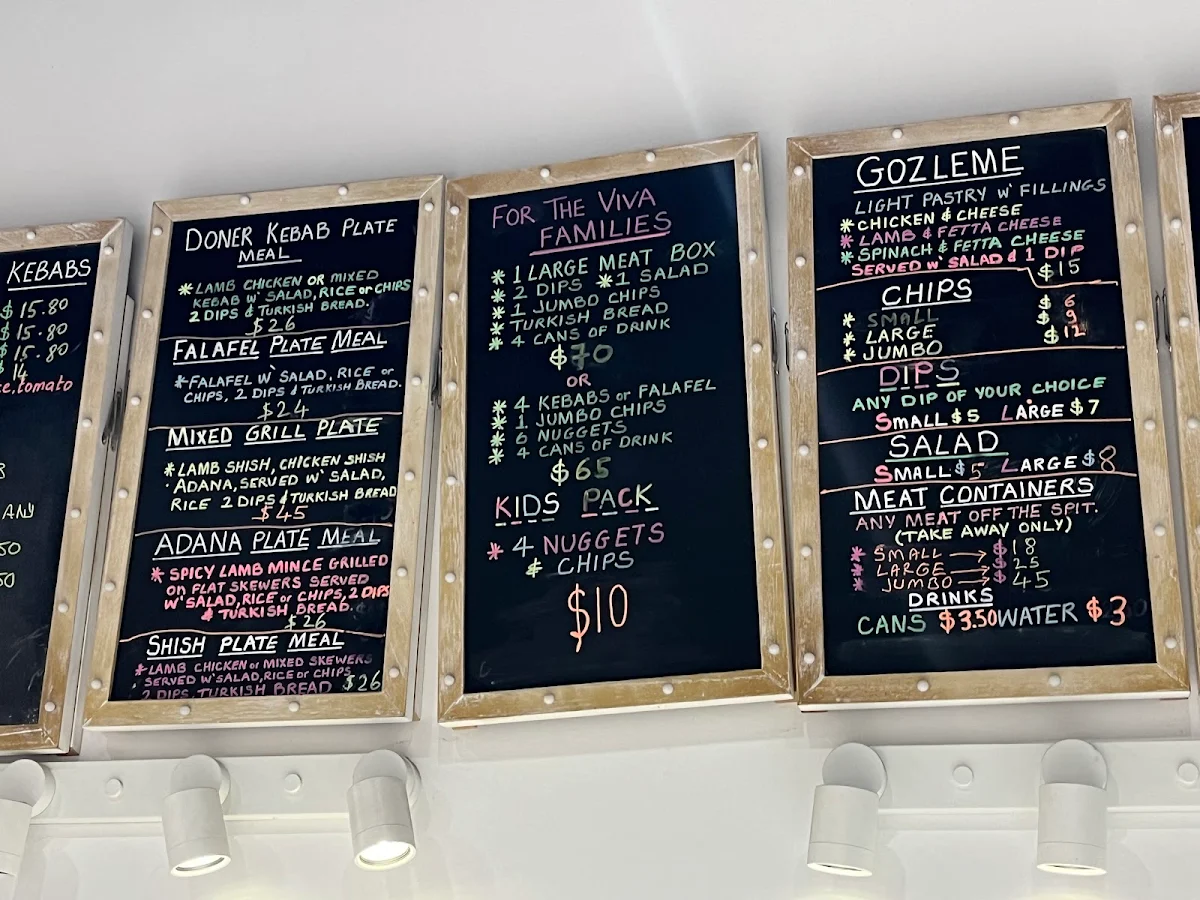 KEBABS
$15.80
$15.80
$15.80
$14
ce.tomato
ANY
50
50
DONER KEBAB PLATE
MEAL
*LAMB CHICKEN OR MIXED
KEBAB W' SALAD, RICE or CHIPS
2 DIPS & TURKISH BREAD.
$26
FALAFEL PLATE MEAL
*FALAFEL W' SALAD, RICE or
CHIPS, 2 DIPS & TURKISH BREAD.
$24
MIXED GRILL PLATE
*LAMB SHISH, CHICKEN SHISH
ADANA, SERVED W' SALAD,
RICE 2 DIPS & TURKISH BREAD
$45
ADANA PLATE MEAL
* SPICY LAMB MINCE GRILLED
ON FLAT SKEWERS SERVED
W' SALAD, RICE or CHIPS, 2 DIPS
& TURKISH BREAD.
$26
SHISH PLATE MEAL
*LAMB CHICKEN or MIXED SKEWERS
SERVED W' SALAD, RICE or CHIPS
2 DIPS, TURKISH BREAD $26
FOR THE VIVA
FAMILIES
* 1 LARGE MEAT BOX
* 2 DIPS *1 SALAD
* 1 JUMBO CHIPS
* TURKISH BREAD
* 4 CANS OF DRINK
$70
OR
* 4 KEBABS or FALAFEL
* 1 JUMBO CHIPS
* 6 NUGGETS
* 4 CANS OF DRINK
$65
KIDS PACK
* 4 NUGGETS
& CHIPS
$10
GOZLEME
LIGHT PASTRY W' FILLINGS
*CHICKEN & CHEESE
*LAMB & FETTA CHEESE
*SPINACH & FETTA CHEESE
SERVED W' SALAD & 1 DIP
$15
CHIPS
* SMALL $6
* LARGE $9
* JUMBO $12
DIPS
ANY DIP OF YOUR CHOICE
SMALL $5 LARGE $7
SALAD
SMALL $5 LARGE $8
MEAT CONTAINERS
ANY MEAT OFF THE SPIT.
(TAKE AWAY ONLY)
* SMALL → $18
* LARGE → $25
* JUMBO → $45
DRINKS
CANS $3.50 WATER $3